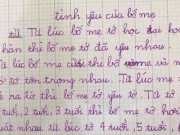 tình yêu của bố mẹ
từ. Từ lúc bố mẹ tớ học đại học
hân thì bố mẹ tớ đã yêu nhau.
Từ lúc bố mẹ cưới thì bố và mẹ
tớ tôn trọng nhau. Từ lúc mẹ
ra tớ thì bố mẹ tớ vẫn
, 2 tuổi, 3 tuổi thì bố, mẹ tớ hơi
nhau từ lúc tớ 4 tuổi, 5 tuổi,